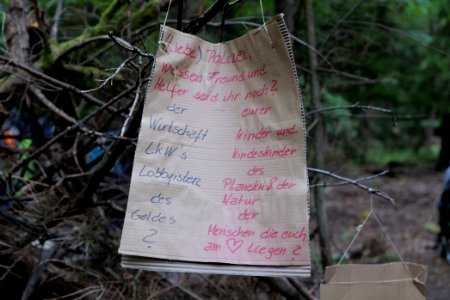 (Liebe) Polizei
Wessen Freund und
Helfer seid ihr noch?
der
Wirtschaft
LKW's
Lobbyisten
des
Geldes
?
eurer
kinder und
kindeskinder
des
Planeten der
Natur
der
Menschen die euch
am ♡ Liegen ?